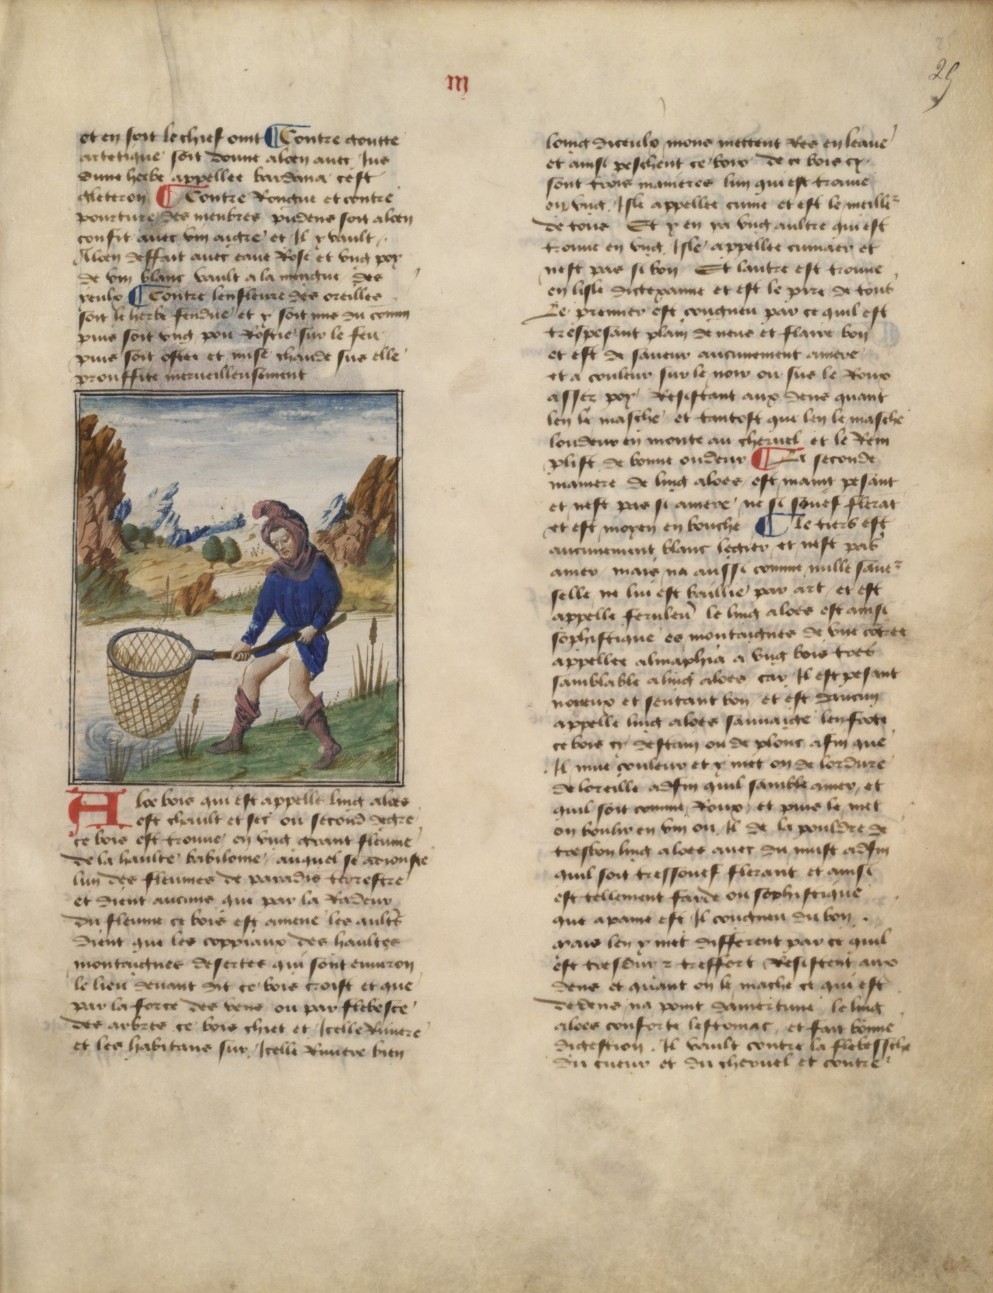 m
29
et en soit le chief oint ¶ Contre goutte
artetique soit donne aloen avec Jus
dune herbe appellee bardana cest
gleteron ¶ Contre Rongne et contre
pourture des menbres pudens soit aloen
confit avec vin aigre et Il y vault
Aloen deffait avec eaue Rose et ung poy
de vin blanc vault a la mengue des
yeulx ¶ Contre lenfleure des oreilles
soit le herbe fendue et y soit mis du comin
puis soit ung pou Rostie sur le feu
puis soit ostee et mise chaude sus elle
prouffite merveilleusement
Aloe bois qui est appelle ling aloes
est chault et sec ou second degre
ce bois est trouve en ung grant fleume
de la haulte babilonie auquel se
lun des fleumes de paradis terrestre
et dient aucuns que par la Radeur
du fleume ce bois est amene les aultres
dient que les coppiaux des haultes
montaignes desertes qui sont environ
le lieu devant dit ce bois croist et que
par la force des vens ou par flebesce
des arbres ce bois chiet et Icelle Riviere
et les habitans sur Icelle Riviere bien
loing diceulx mons mettent Res en leaue
et ainsi peschent ce bois de ce bois cy
sont trois manieres lun qui est trouve
en ung Isle appellee cume et est le meilleur
de tous Et y en ya ung aultre qui est
trouve en ung Isle appellee cumaer et
nest pas si bon Et lautre est trouve
en lisle et est le pire de tous
Le premier est congneu par ce quil est
trespesant plain de neus et flaire bon
et est de saveur aucunement amere
et a couleur sur le noir ou sus le Roux
assez poy Resistant aux dens quant
len le masche et tantost que len le masche
loudeur en monte au chervel et le Rem
plist de bonne oudeur ¶ La seconde
maniere de ling aloes est maing pesant
et nest pas si amere ne si souef flerat
et est moyen en bouche ¶ Le tiers est
aucunement blanc legier et nest pas
amer mais na aussi comme nulle saveur
selle ne lui est baillie par art et est
appelle le ling aloes est ainsi
sophistique es montaignes de une
appellee almaphia a ung bois tres
samblable a ling aloes car Il est pesant
noueux et sentant bon et est daucun
appelle ling aloes sauvaige len frote
ce bois cy destain ou de plonc afin que
Il mue couleur et y met on de lordure
de loreille adfin quil samble amer et
quil soit comme Roux et puis le met
on boulir en vin ou Il de la pouldre de
tresbon ling aloes avec du must adfin
quil soit tressouef flerant et ainsi
est tellement farde ou sophistique
que apaine est Il congneu du bon
mais len y met different par ce quil
est tresdur et tresfort Resistent aux
dens et quant on le mache ce qui est
dedens na point damertume le ling
aloes conforte lestomac et fait bonne
digestion Il vault contre la flebessche
du cueur et du chervel et contre